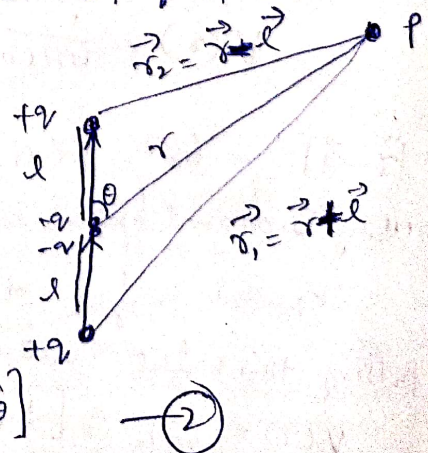 P
r⃗₂ = r⃗ - l⃗
+q
l
r
θ
-q
-q
r⃗₁ = r⃗ + l⃗
l
+q
θ̂] —②